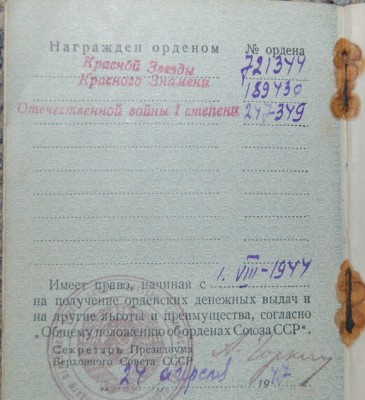 Награжден орденом № ордена
Красной Звезды 721344
Красного Знамени 189430
Отечественной войны I степени 247349
Имеет право, начиная с 1. VIII-1944
на получение орденских денежных выдач и
на другие льготы и преимущества, согласно
„Общему положению об орденах Союза ССР".
Секретарь Президиума
Верховного Совета СССР А. Горкин
24 апреля 1947 г.